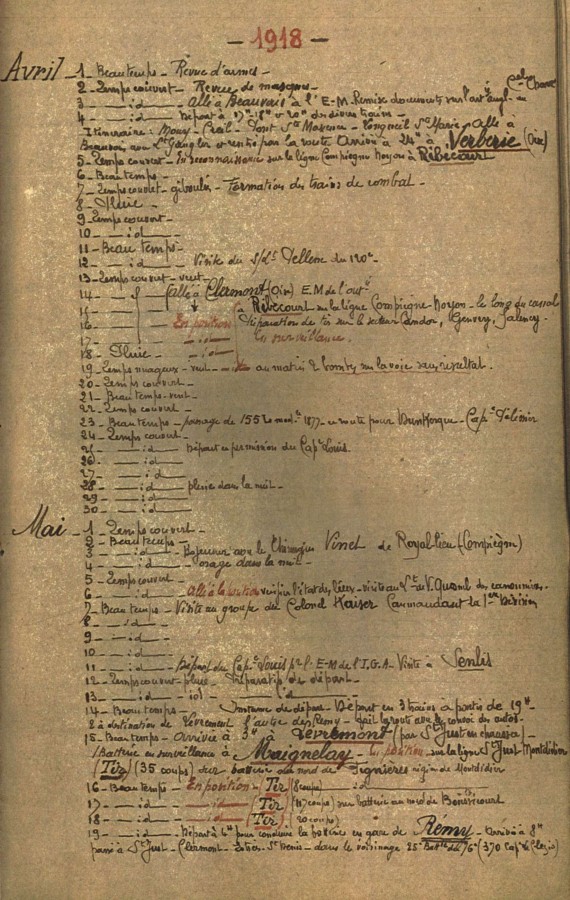 - 1918 -
Avril 1 - Beau temps - Revue d'armes -
2 - Temps couvert - Revue de masques -
3 - — id — Allé à Beauvais à l'E-M. Remise documents sur l'art
4 - — id — Départ à 17h 18h et 20h des divers trains -
Itinéraire : Mouy - Creil - Pont Ste Maxence - Longueil Ste Marie - Allé à
Beauvais avec Lt Gaugler et rentré par la route Arrivé à 24h à Verberie (Oise)
5 - Temps couvert - En reconnaissance sur la ligne Compiègne Noyon à Ribécourt
6 - Beau temps -
7 - Temps couvert giboulées - Formation des trains de combat -
8 - Pluie -
9 - Temps couvert -
10 - — id —
11 - Beau temps -
12 - — id — Visite du s/Lt Pellenc du 120e
13 - Temps couvert - vent
14 - Allé à Clermont (Oise) E.M de l'art
15 - à Ribécourt sur la ligne Compiègne - Noyon - le long du canal
16 - En position Préparation de tir sur le secteur Candor,
17 - — id — En surveillance.
18 - Pluie - — id —
19 - Temps nuageux - vent - — id — au matin 2 bombes sur la voie sans résultat.
20 - Temps couvert -
21 - Beau temps - vent -
22 - Temps couvert -
23 - Beau temps - passage de 155 L modle 1877 en route pour Dunkerque - Capne
24 - Temps couvert -
25 - — id — Départ en permission du Capne Louis
26 - — id —
27 - — id —
28 - — id — pluie dans la nuit -
29 - — id —
30 - — id —
Mai 1 - Temps couvert -
2 - Beau temps -
3 - — id — Déjeuner avec le Chirurgien Vinet de Royallieu (Compiègne)
4 - — id — Orage dans la nuit -
5 - Temps couvert
6 - — id — Allé à la position
7 - Beau temps - Visite au groupe du Colonel Kaiser Commandant la 1ere Division
8 - — id —
9 - — id —
10 - — id —
11 - — id — Départ du Capne Louis pr l'E-M de l'I.G.A - Visite à Senlis
12 - Temps couvert - pluie - Préparatifs de départ -
13 - — id — id — — id —
14 - Beau temps - Départ en 3 trains à partir de 19h
2 à destination de Lèvremont l'autre de Rémy
15 - Beau temps - Arrivée à 3h à Lèvremont (par St Just en chaussée)
1 Batterie en surveillance à Maignelay En position sur la ligne St Just - Montdidier
(Tir) (35 coups) sur batterie au nord de Fignières région de Montdidier
16 - Beau temps - En position - (Tir) (8 coups) — id —
17 - — id — — id — (Tir) (17 coups) sur batterie au nord de
18 - — id — — id — (Tir) (20 coups)
19 - — id — Départ à pour conduire la batterie en gare de Rémy - Arrivée à 8h
passé à St Just - Clermont - Estrées St Denis - dans le voisinage 25e Battie du 76e (370 Capne